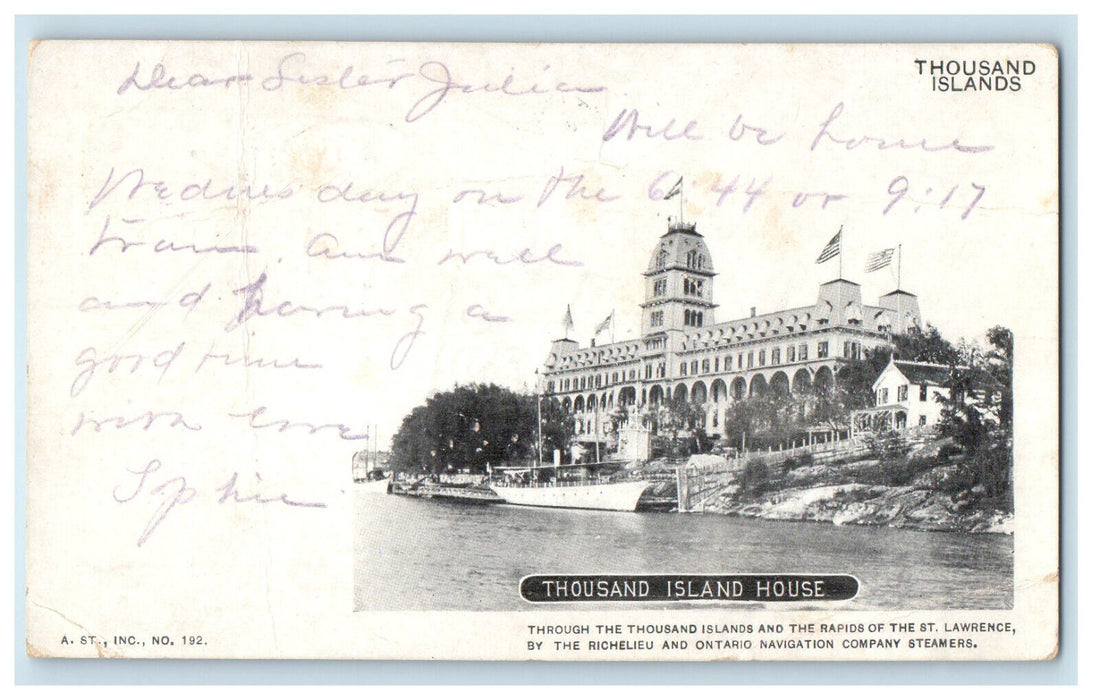 THOUSAND
ISLANDS
Dear Sister Julia
Will be home
Wednesday on the 6:44 or 9:17
train. Am well
and having a
good time
with love
Sophie
THOUSAND ISLAND HOUSE
A. ST., INC., NO. 192.
THROUGH THE THOUSAND ISLANDS AND THE RAPIDS OF THE ST. LAWRENCE,
BY THE RICHELIEU AND ONTARIO NAVIGATION COMPANY STEAMERS.